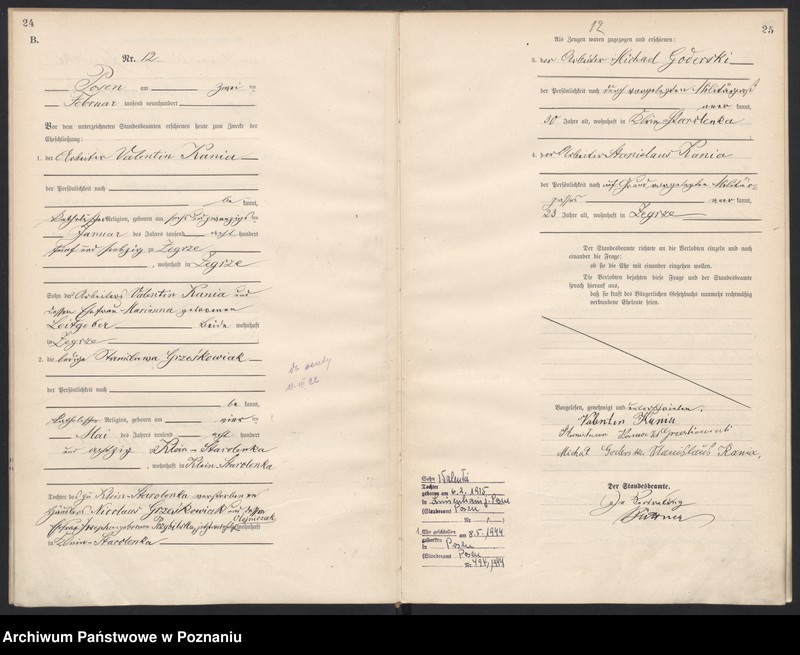 24
B.
Nr. 12.
Posen am zwei ten
Februar tausend neunhundert
Vor dem unterzeichneten Standesbeamten erschienen heute zum Zwecke der
Eheschließung:
1. der Arbeiter Valentin Kania
der Persönlichkeit nach
be kannt,
katholischer Religion, geboren am sechs und zwanzigsten
Januar des Jahres tausend acht hundert
fünf und siebzig in Zegrze
, wohnhaft in Zegrze
Sohn des Arbeiters Valentin Kania und
dessen Ehefrau Marianna geborenen
Leitgeber beide wohnhaft
in Zegrze
2. die ledige Stanislawa Grześkowiak
der Persönlichkeit nach
be kannt,
katholischer Religion, geboren am vier ten
Mai des Jahres tausend acht hundert
und achtzig Klein-Starolenka
, wohnhaft in Klein-Starolenka
Tochter des zu Klein-Starolenka verstorbenen
Händlers Nicolaus Grześkowiak und dessen
Ehefrau Josepha geborenen Przybylska, jetzt verehelichte Olejniczak wohnhaft
in Klein-Starolenka
25
12
Als Zeugen waren zugezogen und erschienen:
3. der Arbeiter Michael Goderski
der Persönlichkeit nach durch vorgelegten Militärpaß
aner kannt,
30 Jahre alt, wohnhaft in Klein Starolenka
4. der Arbeiter Stanislaus Kania
der Persönlichkeit nach auf Grund vorgelegten Militär-
passes aner kannt,
23 Jahre alt, wohnhaft in Zegrze
Der Standesbeamte richtete an die Verlobten einzeln und nach
einander die Frage:
ob sie die Ehe mit einander eingehen wollen.
Die Verlobten bejahten diese Frage und der Standesbeamte
sprach hierauf aus,
daß sie kraft des Bürgerlichen Gesetzbuchs nunmehr rechtmäßig
verbundene Eheleute seien.
Vorgelesen, genehmigt und unterschrieben.
Valentin Kania
Stanislawa Kania
Michał Goderski Stanislaus Kania.
Der Standesbeamte.
In Vertretung
Büttner
Sohn Walenta
Tochter
geboren am 6.2.1915
in
(Standesamt Posen
Nr. / )
1. Ehe geschlossen am 8.5.1944
in Posen
(Standesamt Posen
Nr. 494/1944
Archiwum Państwowe w Poznaniu